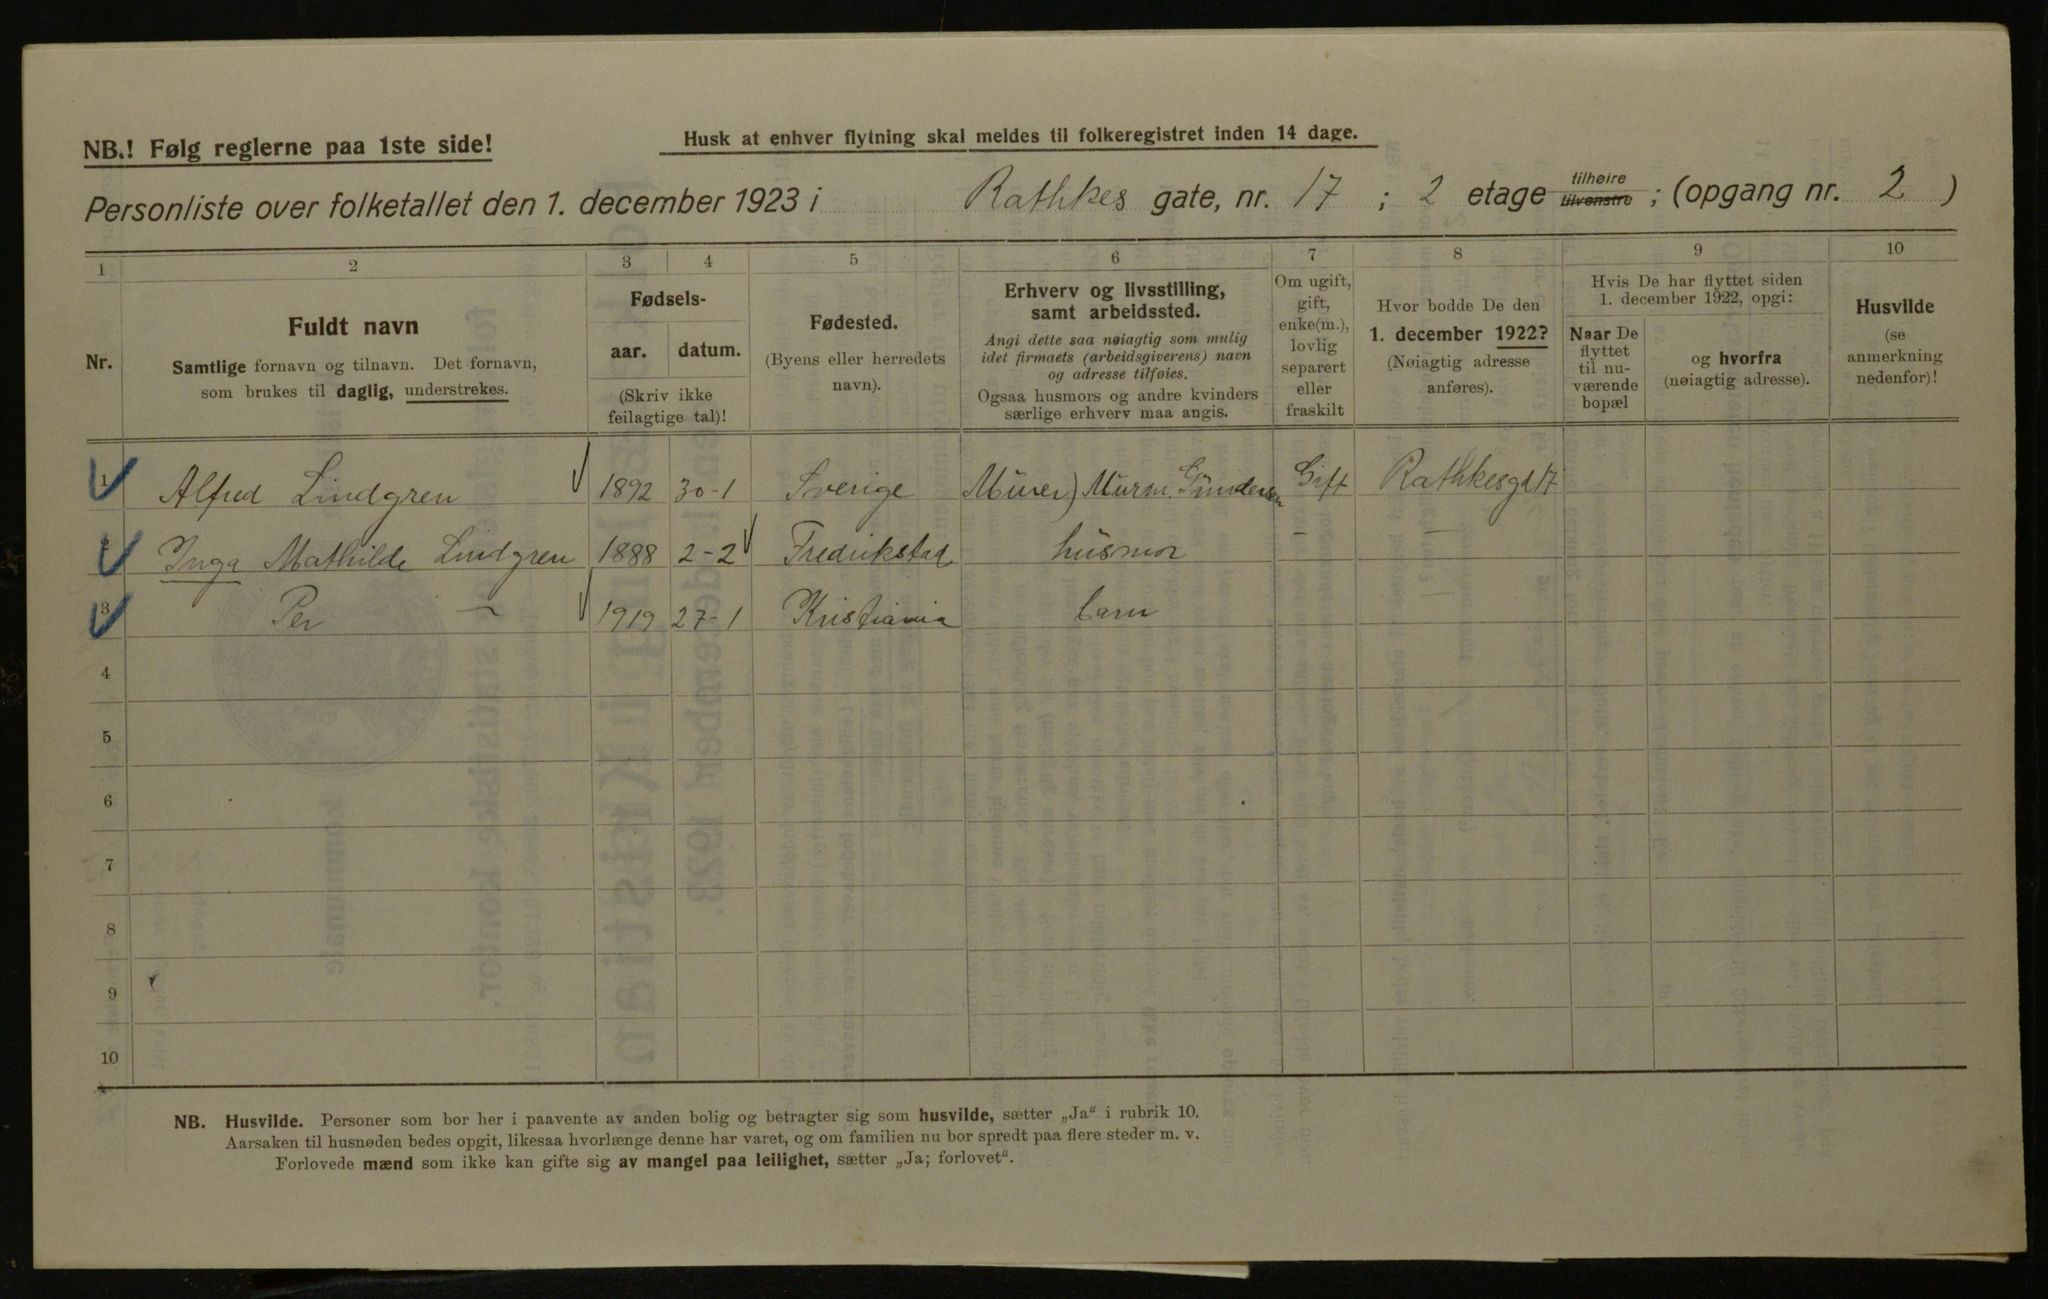 NB.! Følg reglerne paa 1ste side!
Husk at enhver flytning skal meldes til folkeregistret inden 14 dage.
Personliste over folketallet den 1. december 1923 i Rathkes gate, nr. 17 ; 2 etage tilhøire tilvenstre ; (opgang nr. 2 )
1 2 3 4 5 6 7 8 9 10
Nr.
Fuldt navn
Samtlige fornavn og tilnavn. Det fornavn,
som brukes til daglig, understrekes.
Fødsels-
aar. datum.
(Skriv ikke
feilagtige tal)!
Fødested.
(Byens eller herredets
navn).
Erhverv og livsstilling,
samt arbeidssted.
Angi dette saa nøiagtig som mulig
idet firmaets (arbeidsgiverens) navn
og adresse tilføies.
Ogsaa husmors og andre kvinders
særlige erhverv maa angis.
Om ugift,
gift,
enke(m.),
lovlig
separert
eller
fraskilt
Hvor bodde De den
1. december 1922?
(Nøiagtig adresse
anføres).
Hvis De har flyttet siden
1. december 1922, opgi:
Naar De
flyttet
til nu-
værende
bopæl
og hvorfra
(nøiagtig adresse).
Husvilde
(se
anmerkning
nedenfor)!
1 Alfred Lindgren 1892 30-1 Sverige Murer) Murm. Gundersen Gift Rathkesgd 17
2 Inga Mathilde Lindgren 1888 2-2 Fredrikstad husmor - -
3 Per - 1919 27-1 Kristiania barn
4
5
6
7
8
9
10
NB. Husvilde. Personer som bor her i paavente av anden bolig og betragter sig som husvilde, sætter „Ja“ i rubrik 10.
Aarsaken til husnøden bedes opgit, likesaa hvorlænge denne har varet, og om familien nu bor spredt paa flere steder m. v.
Forlovede mænd som ikke kan gifte sig av mangel paa leilighet, sætter „Ja; forlovet“.